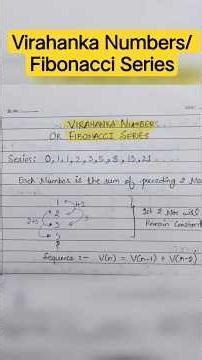 Virahanka Numbers/
Fibonacci Series
VIRAHANKA NUMBERS
OR FIBONACCI SERIES
Series: 0,1,1,2,3,5,8,13,21....
Each Number is the sum of preceding 2 Nos
1
2
3
5
8
1st 2 Nos will
Remain Constant
Sequence :- V(n) = V(n-1) + V(n-2)